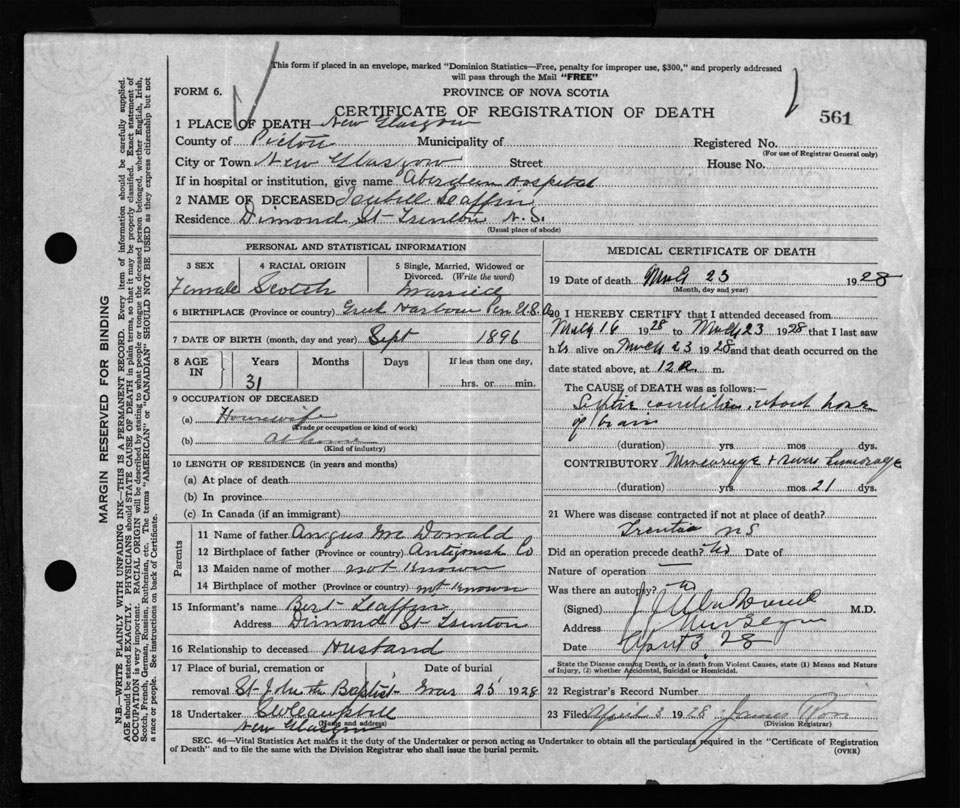 This form if placed in an envelope, marked "Dominion Statistics—Free, penalty for improper use, $300," and properly addressed
will pass through the Mail "FREE"
FORM 6.
PROVINCE OF NOVA SCOTIA
CERTIFICATE OF REGISTRATION OF DEATH
561
1 PLACE OF DEATH New Glasgow
County of Pictou Municipality of Registered No.
(For use of Registrar General only)
City or Town New Glasgow Street House No.
If in hospital or institution, give name Aberdeen Hospital
2 NAME OF DECEASED
Residence Dimond St Trenton N.S.
(Usual place of abode)
MARGIN RESERVED FOR BINDING
N.B.—WRITE PLAINLY WITH UNFADING INK—THIS IS A PERMANENT RECORD. Every item of information should be carefully supplied.
AGE should be stated EXACTLY. PHYSICIANS should STATE CAUSE OF DEATH in plain terms, so that it may be properly classified. Exact statement of
OCCUPATION is very important. RACIAL ORIGIN will be described by stating to what people or tongue the deceased person belonged, whether English, Irish,
Scotch, French, German, Russian, Ruthenian, etc. The terms "AMERICAN" or "CANADIAN" SHOULD NOT BE USED as they express citizenship but not
a race or people. See instructions on back of Certificate.
PERSONAL AND STATISTICAL INFORMATION
3 SEX
Female
4 RACIAL ORIGIN
Scotch
5 Single, Married, Widowed or
Divorced. (Write the word)
Married
6 BIRTHPLACE (Province or country) Harbour U.S.A
7 DATE OF BIRTH (month, day and year) Sept 1896
8 AGE
IN
Years
31
Months
Days
If less than one day,
hrs. or min.
9 OCCUPATION OF DECEASED
(a) Housewife
(Trade or occupation or kind of work)
(b) At home
(Kind of industry)
10 LENGTH OF RESIDENCE (in years and months)
(a) At place of death
(b) In province
(c) In Canada (if an immigrant)
Parents
11 Name of father Angus Mc Donald
12 Birthplace of father (Province or country) Antigonish Co
13 Maiden name of mother not Known
14 Birthplace of mother (Province or country) not Known
15 Informant's name Bert
Address Dimond St Trenton
16 Relationship to deceased Husband
17 Place of burial, cremation or
removal St. John the Baptist
Date of burial
Mar 25 1928
18 Undertaker Campbell
(Name and address)
New Glasgow
MEDICAL CERTIFICATE OF DEATH
19 Date of death March 23 1928
(Month, day and year)
20 I HEREBY CERTIFY that I attended deceased from
March 16 1928 to March 23 1928 that I last saw
her alive on March 23 1928 and that death occurred on the
date stated above, at 12 a. m.
The CAUSE OF DEATH was as follows:—
Septic condition about base
of brain
(duration) yrs. mos. dys.
CONTRIBUTORY
(duration) yrs. mos 21 dys.
21 Where was disease contracted if not at place of death?
Trenton NS
Did an operation precede death? No Date of
Nature of operation —
Was there an autopsy? No
(Signed) M.D.
Address New Glasgow
Date April 3 28
State the Disease causing Death, or in death from Violent Causes, state (1) Means and Nature
of Injury, (2) whether Accidental, Suicidal or Homicidal.
22 Registrar's Record Number
23 Filed April 3 1928 James
(Division Registrar)
SEC. 46—Vital Statistics Act makes it the duty of the Undertaker or person acting as Undertaker to obtain all the particulars required in the "Certificate of Registration
of Death" and to file the same with the Division Registrar who shall issue the burial permit.
(OVER)